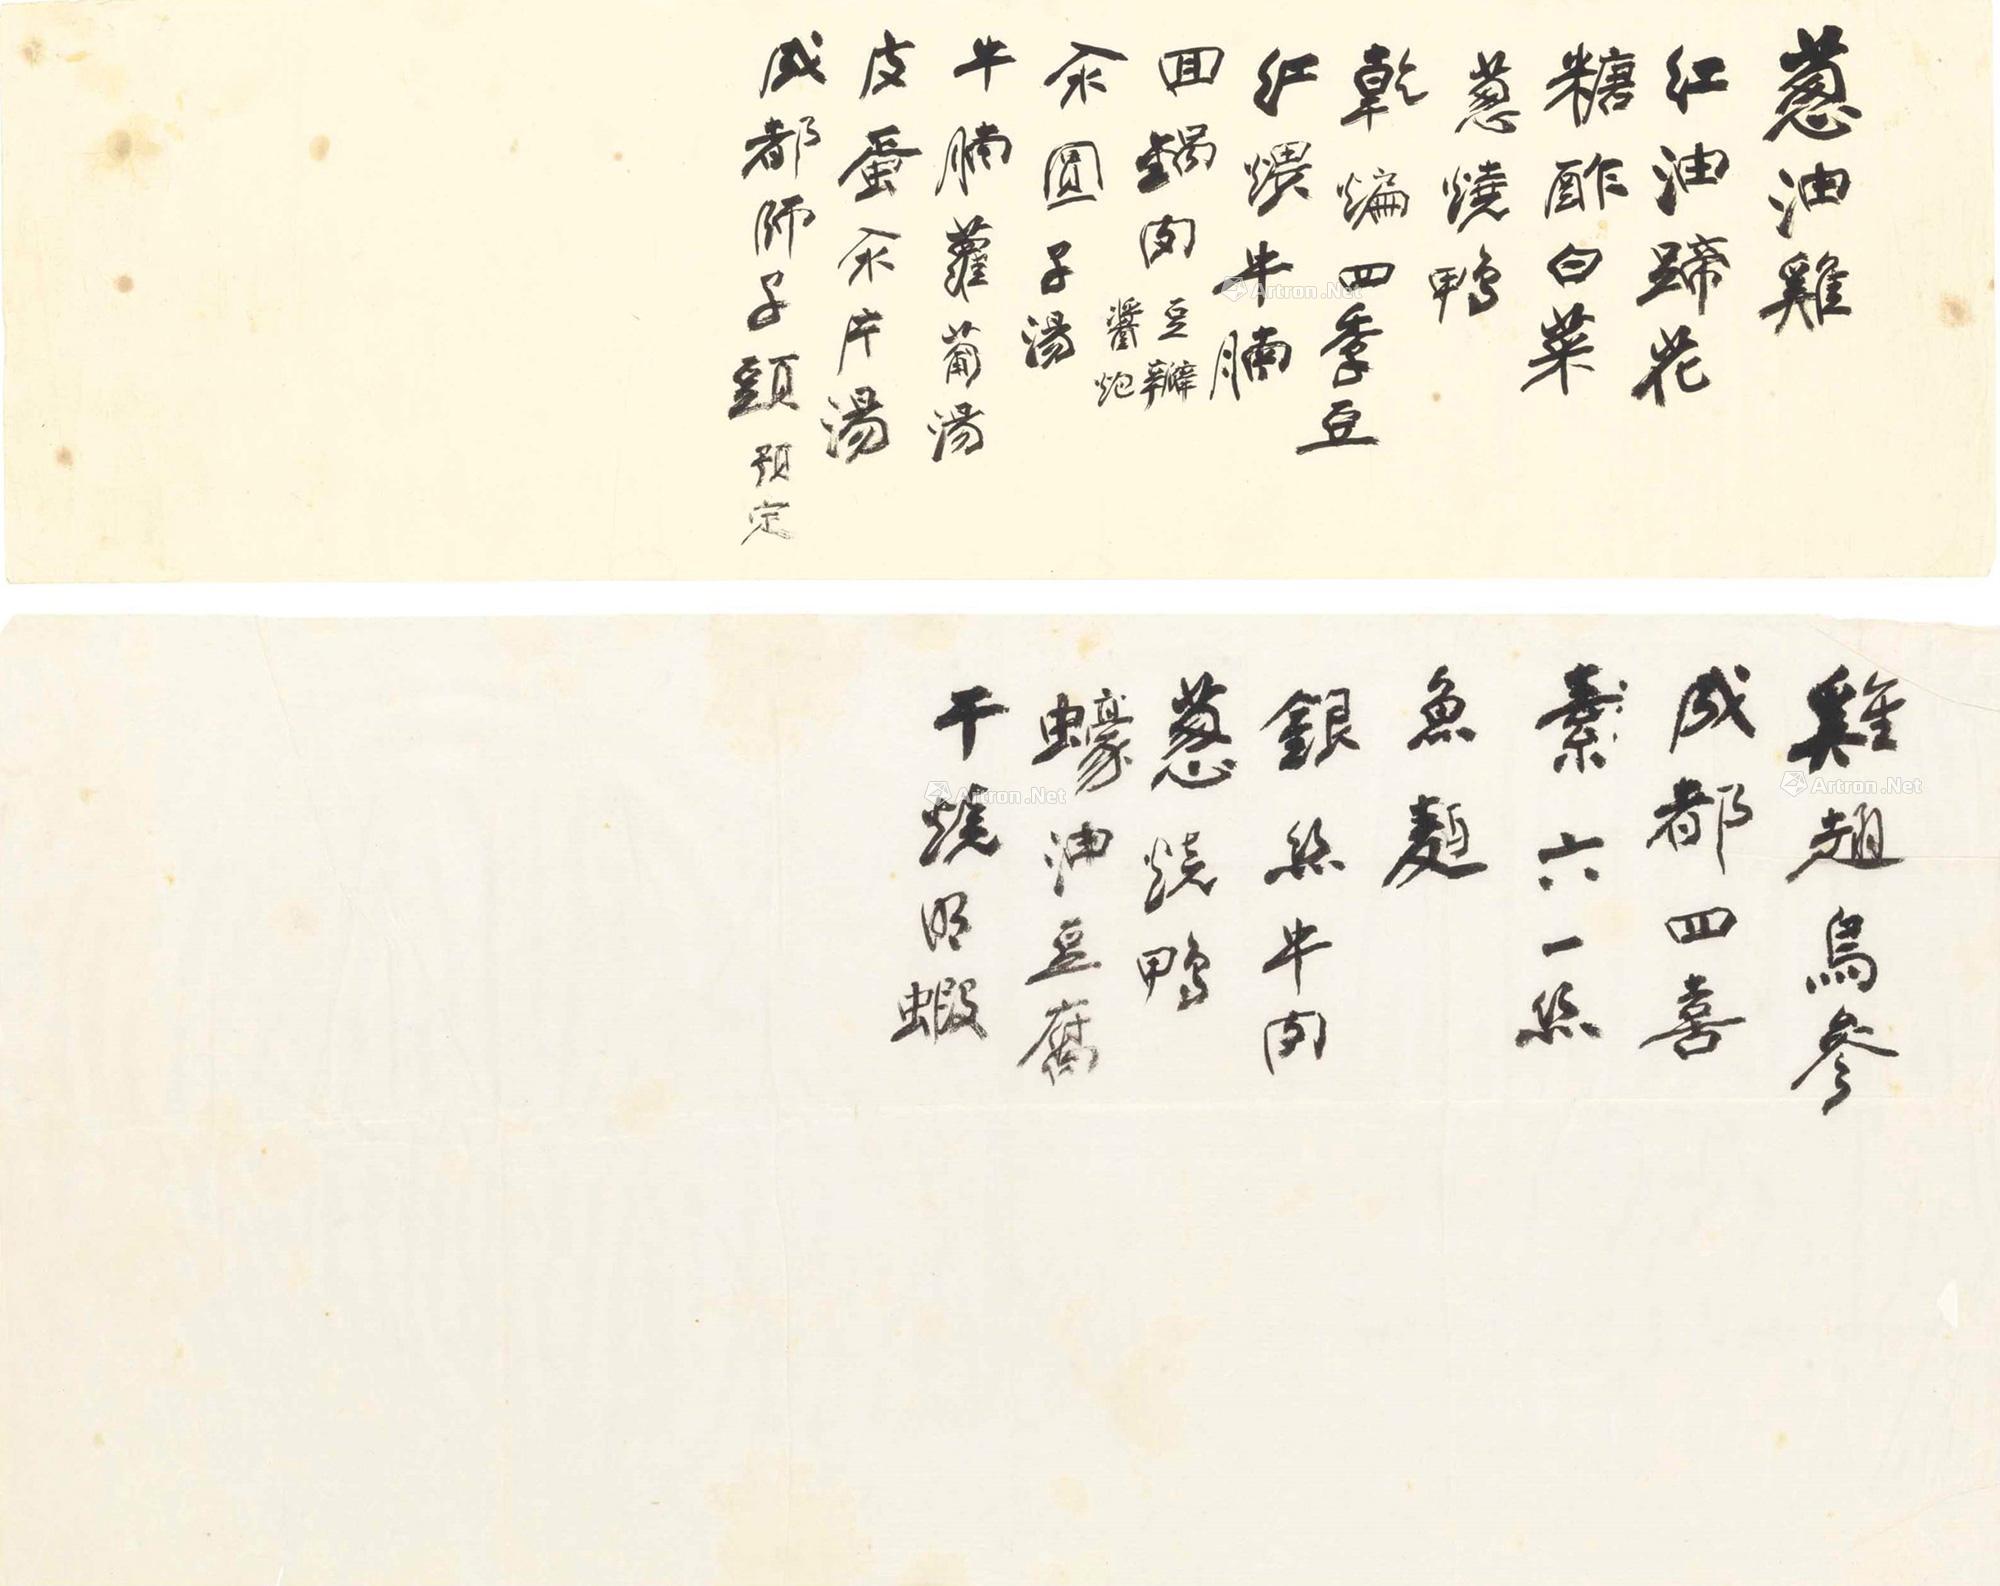 蔥油雞
紅油蹄花
糖酢白菜
蔥燒鴨
乾煸四季豆
紅煨牛腩
回鍋肉 豆瓣醬炮
氽圓子湯
牛腩蘿蔔湯
皮蛋氽片湯
成都師子頭 預定
雞翅烏參
成都四喜
素六一絲
魚麵
銀絲牛肉
蔥燒鴨
蠔油豆腐
干燒明蝦
Artron.Net
Artron.Net
Artron.Net